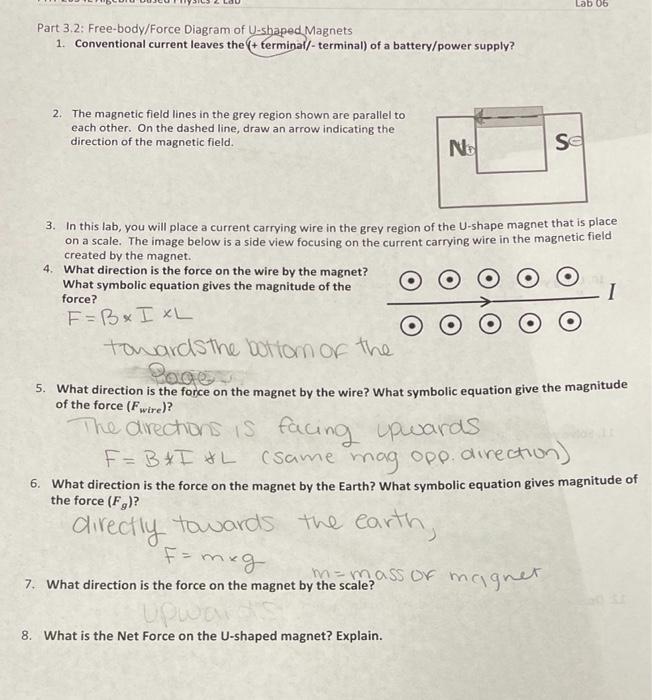 Lab 06
Part 3.2: Free-body/Force Diagram of U-shaped Magnets
1. Conventional current leaves the (+ terminal/- terminal) of a battery/power supply?
2. The magnetic field lines in the grey region shown are parallel to
each other. On the dashed line, draw an arrow indicating the
direction of the magnetic field.
N S
3. In this lab, you will place a current carrying wire in the grey region of the U-shape magnet that is place
on a scale. The image below is a side view focusing on the current carrying wire in the magnetic field
created by the magnet.
4. What direction is the force on the wire by the magnet?
What symbolic equation gives the magnitude of the
force?
I
F = B x I x L
towards the bottom of the
page
5. What direction is the force on the magnet by the wire? What symbolic equation give the magnitude
of the force (Fwire)?
The directions is facing upwards
F = B * I * L (same mag opp. direction)
6. What direction is the force on the magnet by the Earth? What symbolic equation gives magnitude of
the force (Fg)?
directly towards the earth,
F = m x g
m = mass of magnet
7. What direction is the force on the magnet by the scale?
upwards
8. What is the Net Force on the U-shaped magnet? Explain.